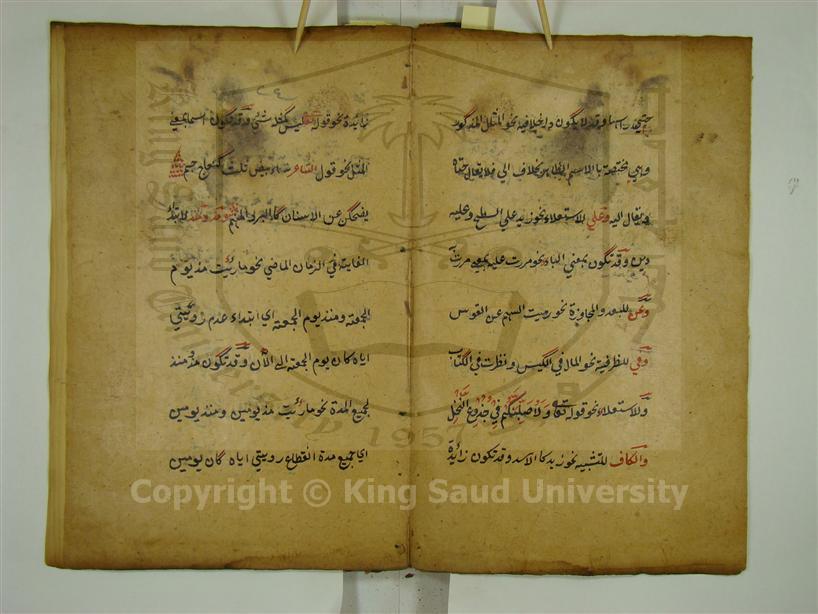 حتي راسها وقد لا يكون داخلا فيه نحو المثل المذكور
وهي مختصة بالاسم الظاهر بخلاف الي فلا يقال حتاه
ويقال اليه وعلي للاستعلاء نحو زيد علي السطح وعليه
دين وقد تكون بمعني الباء نحو مررت عليه بمعني مررت
وعن للبعد والمجاوزة نحو رميت السهم عن القوس
وفي للظرفية نحو المال في الكيس ونظرت في الكتاب
وللاستعلاء نحو قوله تعالى وَلَاُصَلِّبَنَّكُمْ في جُذُوعِ النَّخْلِ
والكاف للتشبيه نحو زيد كالاسد وقد تكون زائدة
زائدة نحو قوله تعالى ليس كمثله شئ وقد تكون اسما بمعني
المثل نحو قول الشاعر بيض ثلث كنعاج جم
يضحكن عن الاسنان كالبرد المنهم ومذ ومنذ لابتداء
الغاية في الزمان الماضي نحو ما رئيت مذ يوم
الجمعة ومنذ يوم الجمعة اي ابتداء عدم رؤيتي
اياه كان يوم الجمعة الي الآن وقد تكون مذ ومنذ
لجميع المدة نحو ما رئيت مذ يومين ومنذ يومين
اي جميع مدة انقطاع رويتي اياه كان يومين
Copyright © King Saud University